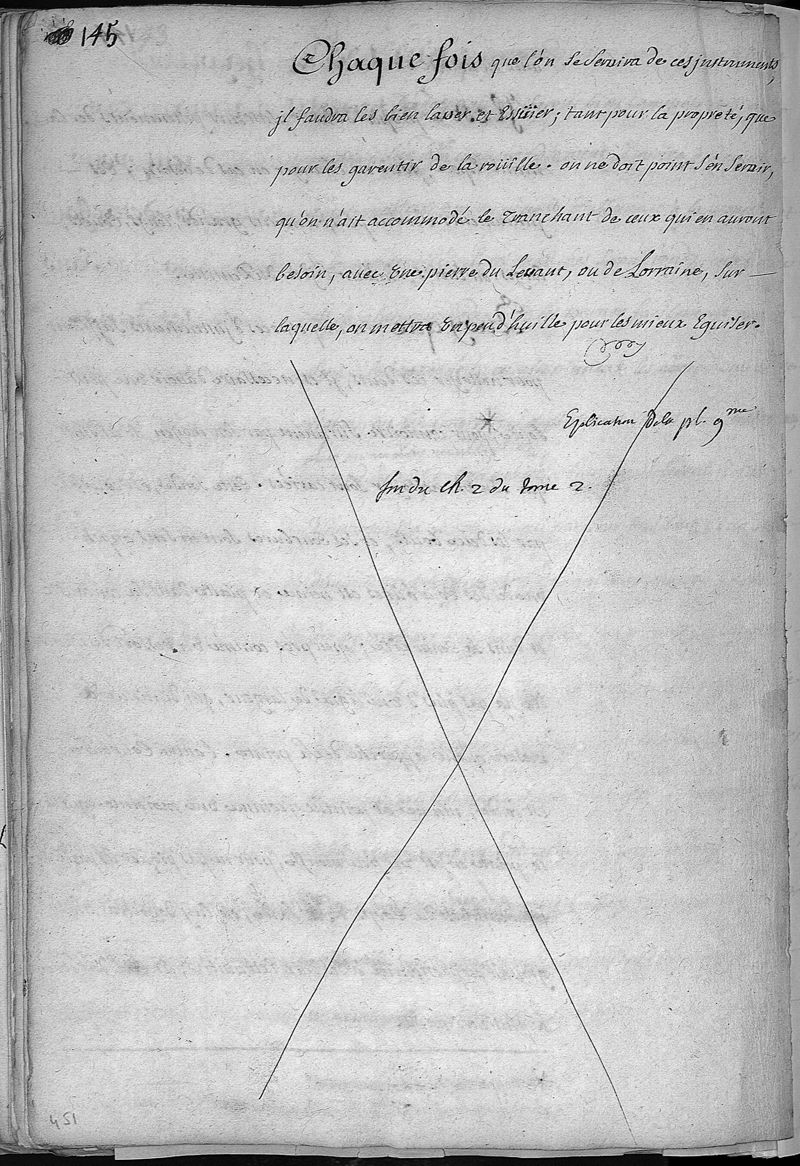 145
Chaque fois que l'ón se servira de ces jnstruments,
jl faudra les bien laver et Essüier; tant pour la propreté, que
pour les garentir de la roüille. on ne doit point s'én servir,
qu'on n'ait accommodé le Tranchant de ceux qui en auront
besoin, avec une pierre du Levant, ou de Lorraine, sur
laquelle, on mettra un peu d'huille pour les mieux Eguiser.
Explication de la pl. 9me
fin du ch. 2 du tome 2.
451